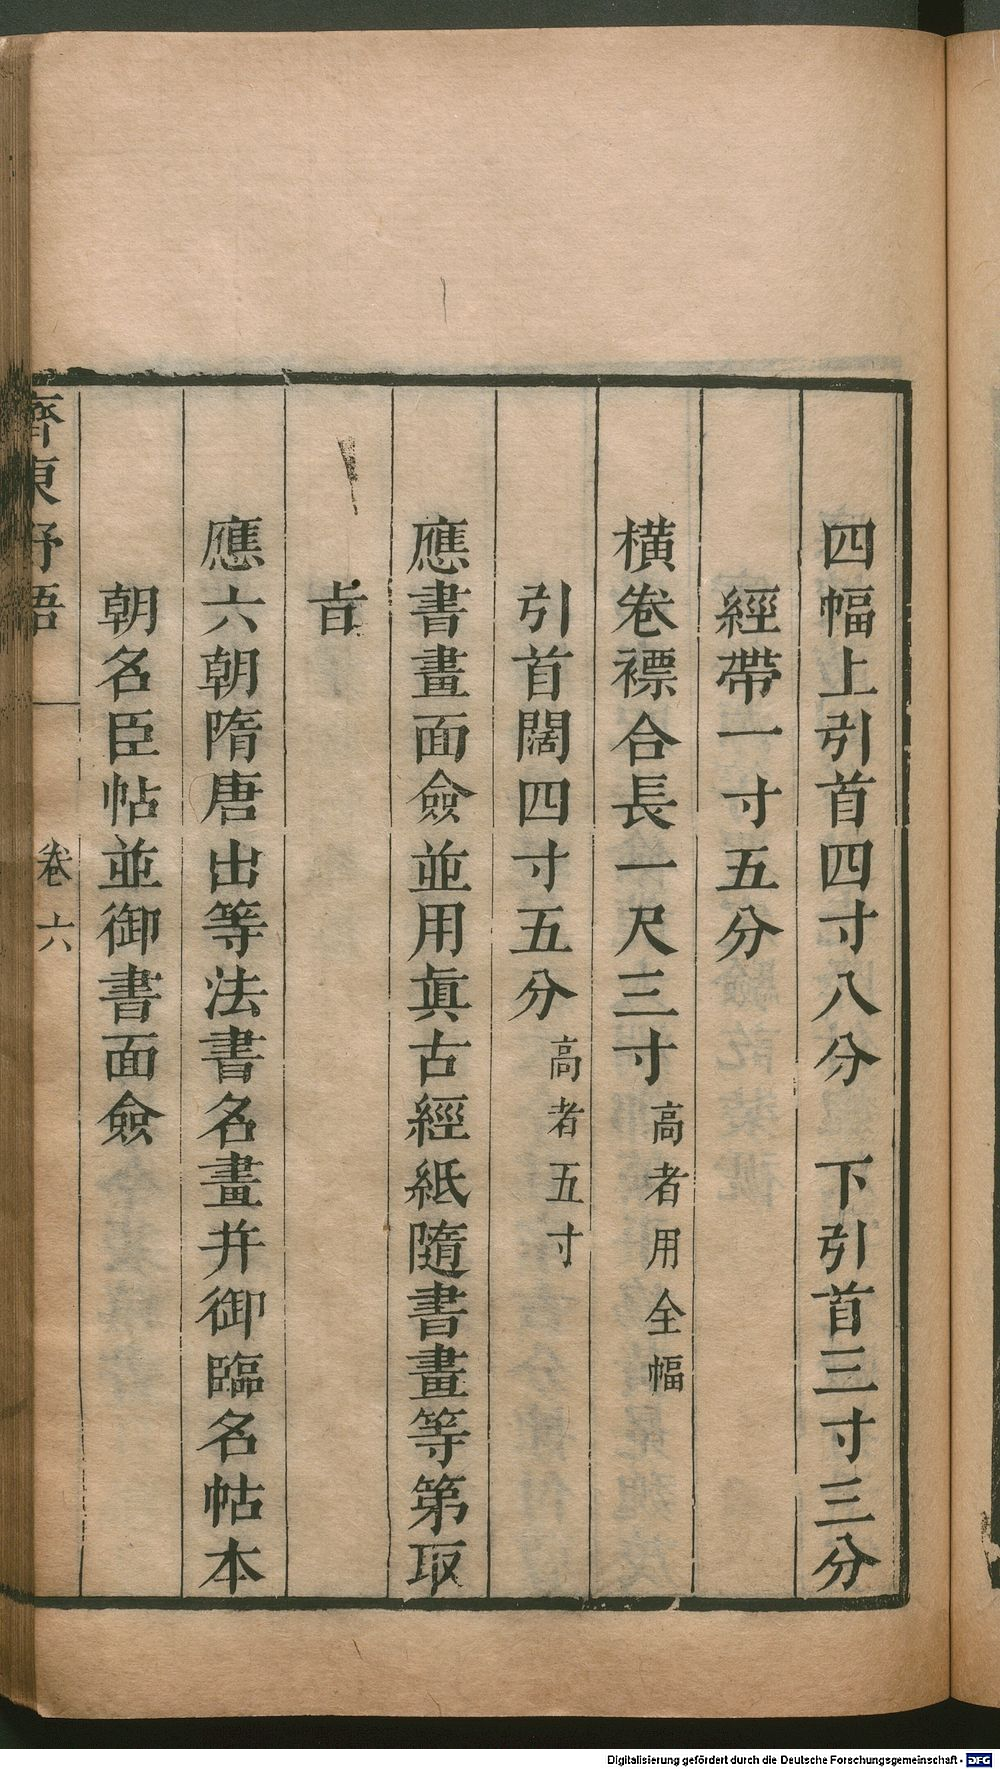 四幅上引首四寸八分　下引首三寸三分
經帶一寸五分
橫卷褾合長一尺三寸高者用全幅
引首闊四寸五分高者五寸
應書畫面僉並用眞古經紙隨書畫等第取
旨
應六朝隋唐出等法書名畫并御臨名帖本
朝名臣帖並御書面僉
齊東野語
卷六
Digitalisierung gefördert durch die Deutsche Forschungsgemeinschaft - DFG